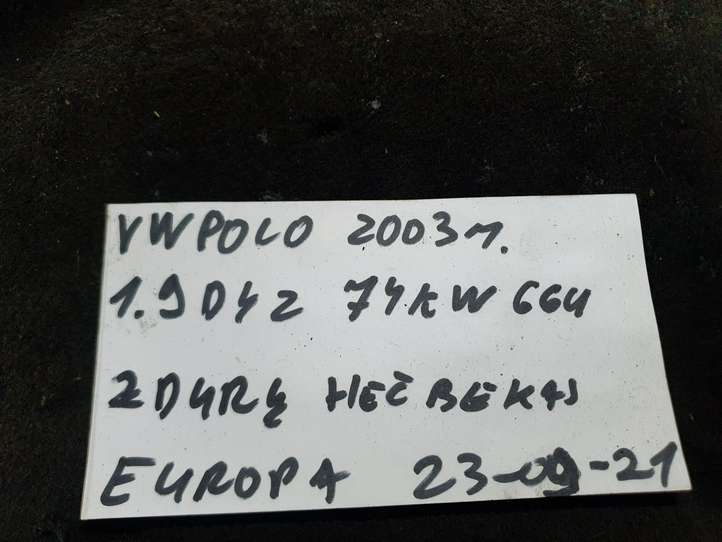 VW POLO 2003 M.
1.9 DYZ 74 KW 664
2 DURŲ HEČBEKAS
EUROPA 23-09-21